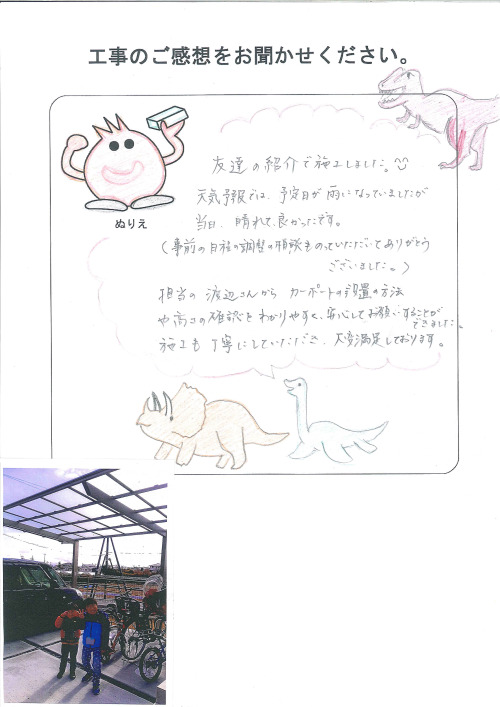 工事のご感想をお聞かせください。
ぬりえ
友達の紹介で施工しました。
天気予報では、予定日が雨になっていましたが
当日、晴れて、良かったです。
(事前の日程の調整の相談ものっていただいてありがとう
ございました。)
担当の渡辺さんから カーポートの設置の方法
や高さの確認をわかりやすく、安心してお願いすることが
できました。
施工も丁寧にしていただき、大変満足しております。